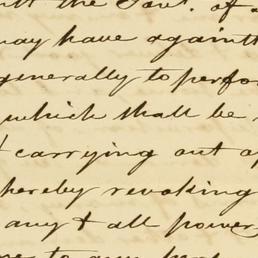 the Govt. of
may have against
generally to perfo
which shall be
& carrying out a
hereby revoking
any & all power